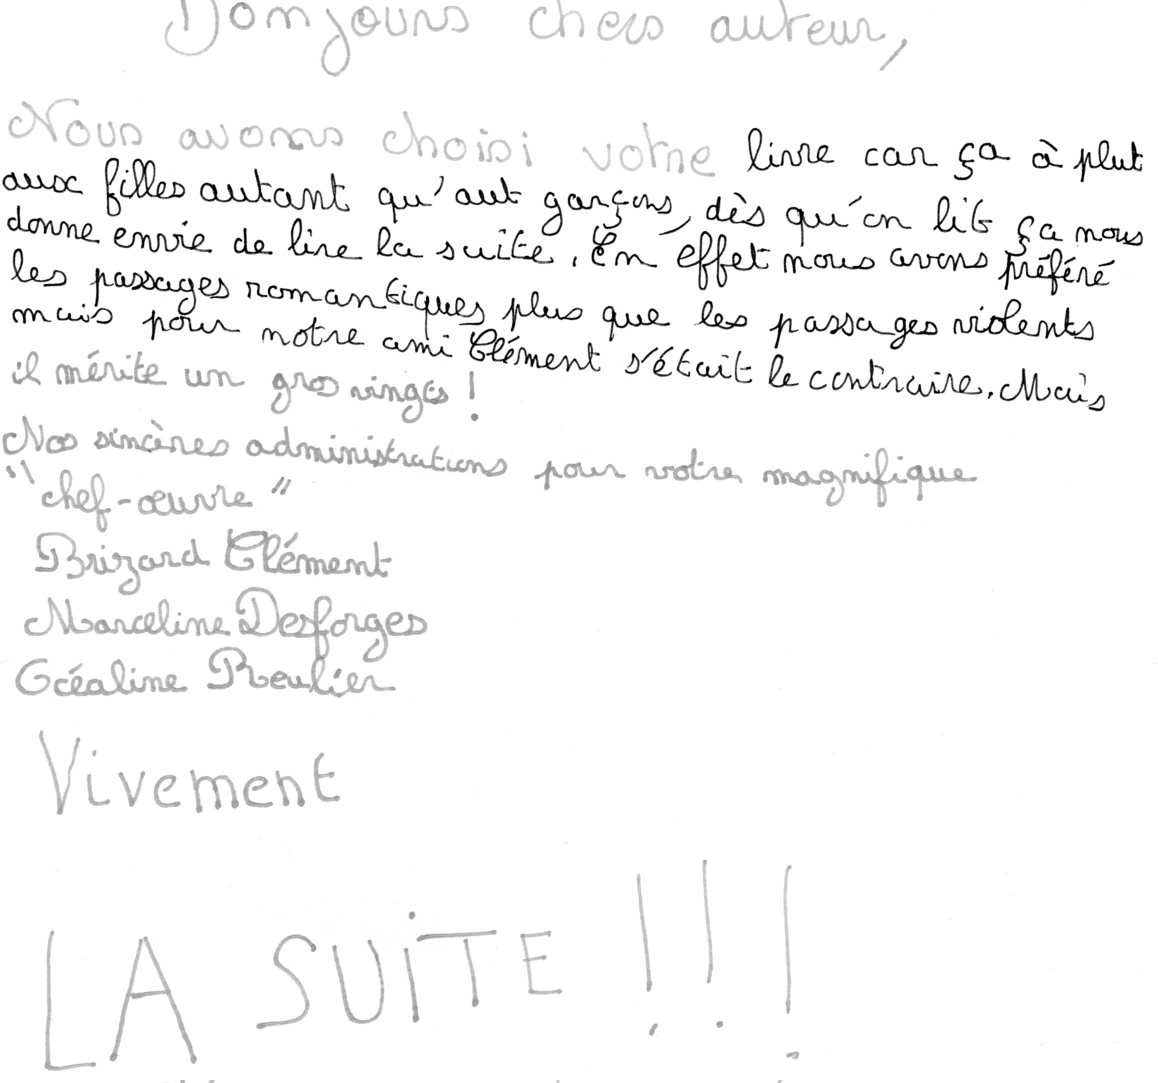 Bonjours chers auteur,
Nous avons choisi votre livre car ça à plut
aux filles autant qu'aut garçons, dès qu'on lit ça nous
donne envie de lire la suite. En effet nous avons préféré
les passages romantiques plus que les passages violents
mais pour notre ami Clément s'était le contraire. Mais
il mérite un gros singes !
Nos sincères administrations pour votre magnifique
"chef-œuvre"
Brizard Clément
Marceline Desforges
Reulier
Vivement
LA SUiTE !!!